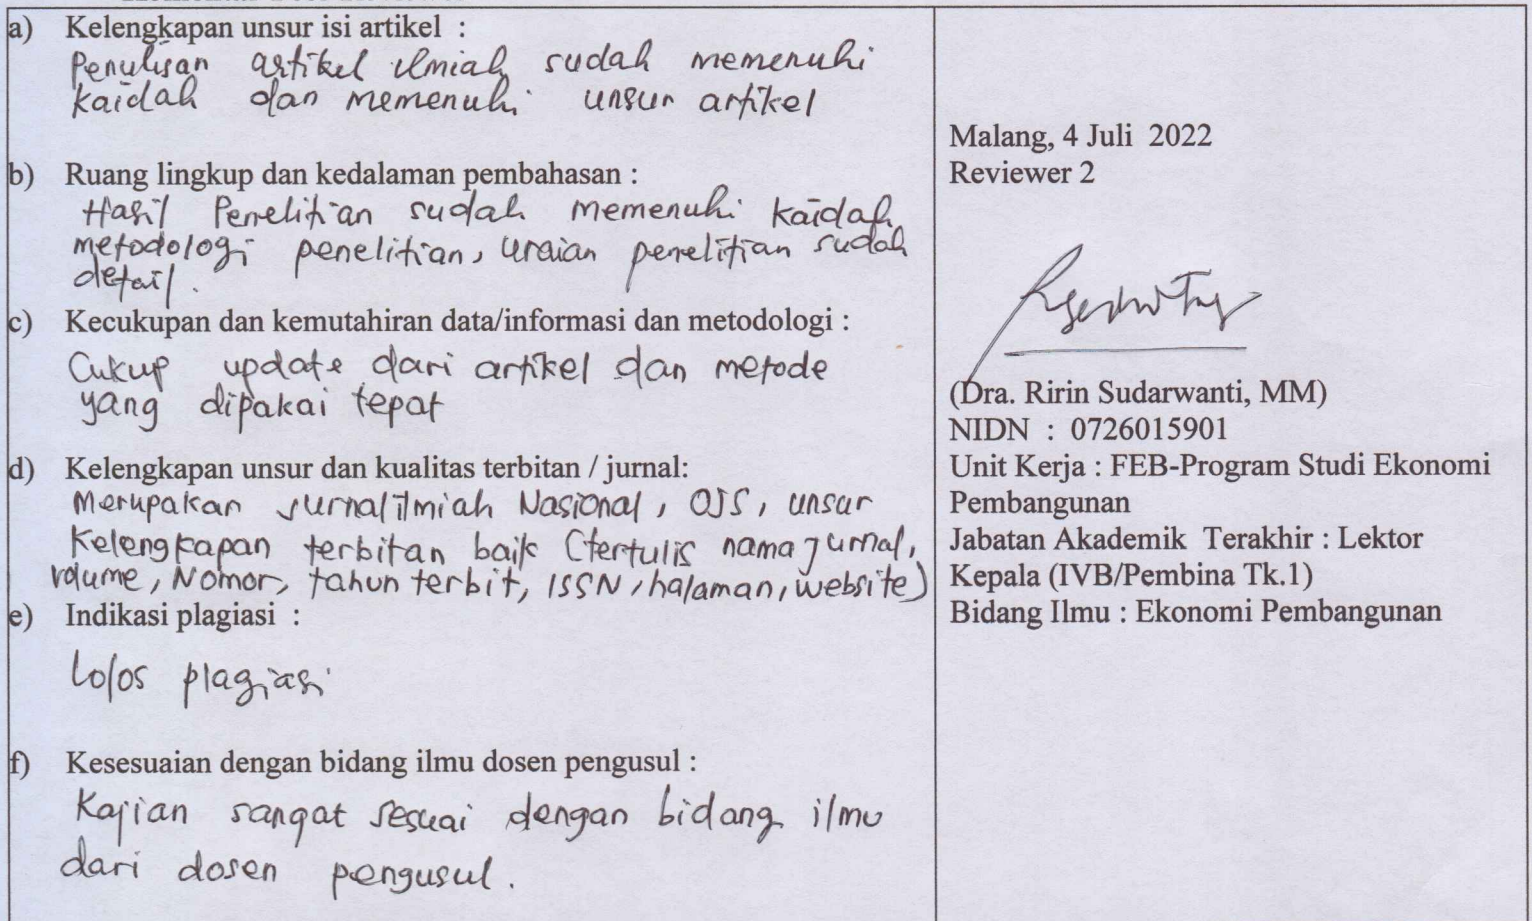 a) Kelengkapan unsur isi artikel :
Penulisan artikel ilmiah sudah memenuhi
kaidah dan memenuhi unsur artikel
b) Ruang lingkup dan kedalaman pembahasan :
Hasil Penelitian sudah memenuhi kaidah
metodologi penelitian, uraian penelitian sudah
detail.
c) Kecukupan dan kemutahiran data/informasi dan metodologi :
Cukup update dari artikel dan metode
yang dipakai tepat
d) Kelengkapan unsur dan kualitas terbitan / jurnal:
Merupakan jurnal ilmiah Nasional, OJS, unsur
Kelengkapan terbitan baik (tertulis nama jurnal,
volume, Nomor, tahun terbit, ISSN, halaman, website)
e) Indikasi plagiasi :
Lolos plagiasi
f) Kesesuaian dengan bidang ilmu dosen pengusul :
Kajian sangat sesuai dengan bidang ilmu
dari dosen pengusul.
Malang, 4 Juli 2022
Reviewer 2
(Dra. Ririn Sudarwanti, MM)
NIDN : 0726015901
Unit Kerja : FEB-Program Studi Ekonomi
Pembangunan
Jabatan Akademik Terakhir : Lektor
Kepala (IVB/Pembina Tk.1)
Bidang Ilmu : Ekonomi Pembangunan